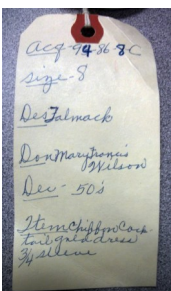 Acq-94-86-8-C
size-8
Des Talmack
Don Mary Francis
Wilson
Dec- 50's
Item Chiffon Cock
tail gold dress
3/4 sleeve